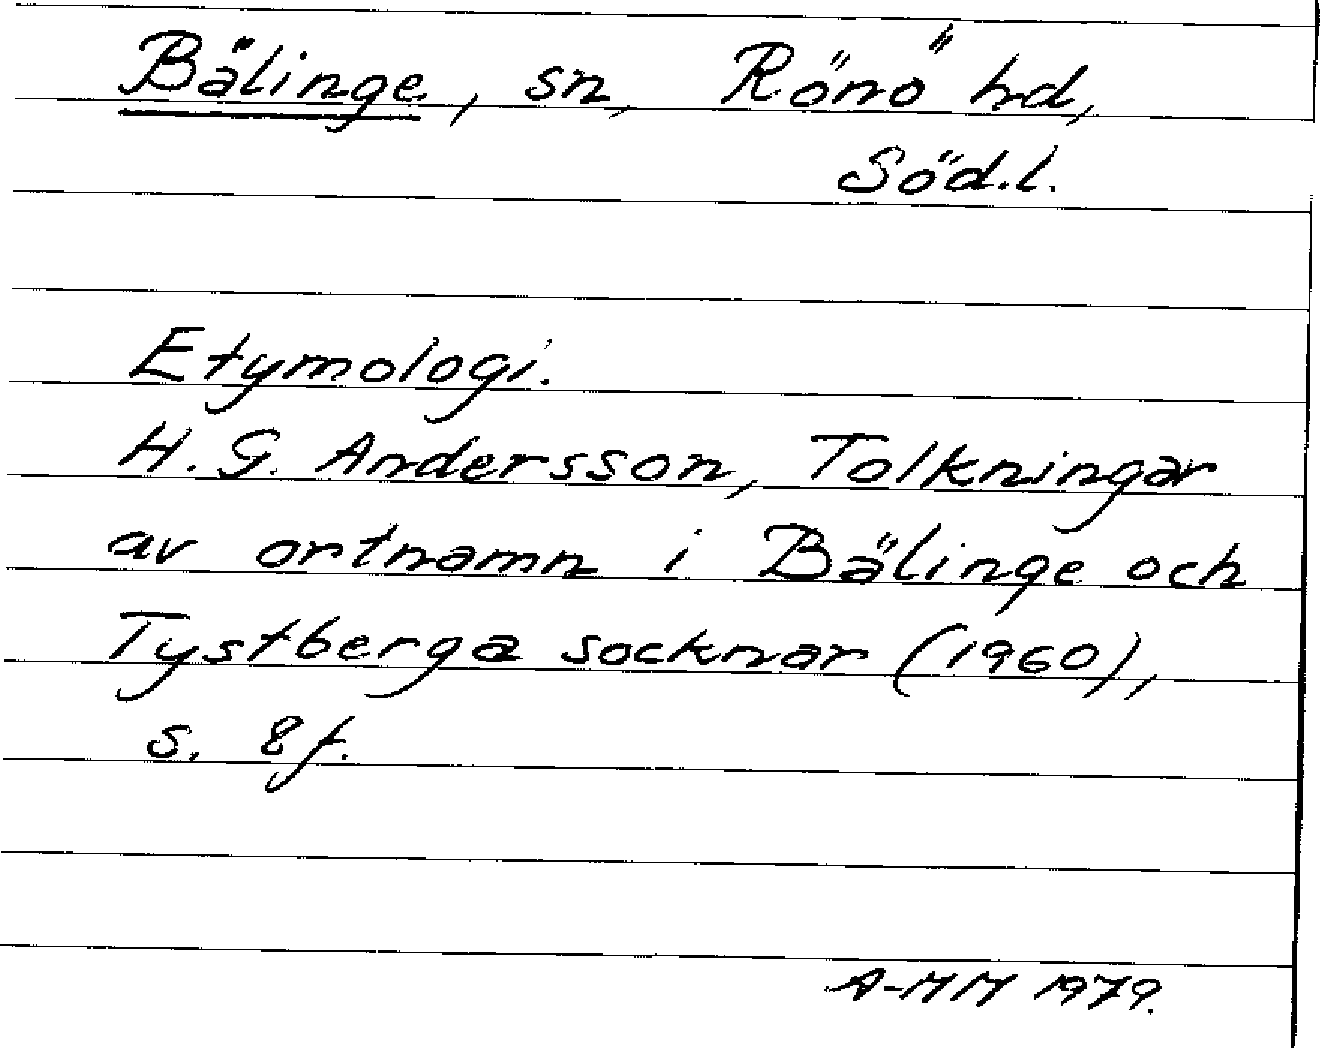 Bälinge, sn, Rönö hd,
Söd.l.
Etymologi.
H. G. Andersson, Tolkningar
av ortnamn i Bälinge och
Tystberga socknar (1960),
s. 8f.
A-MM 1979.